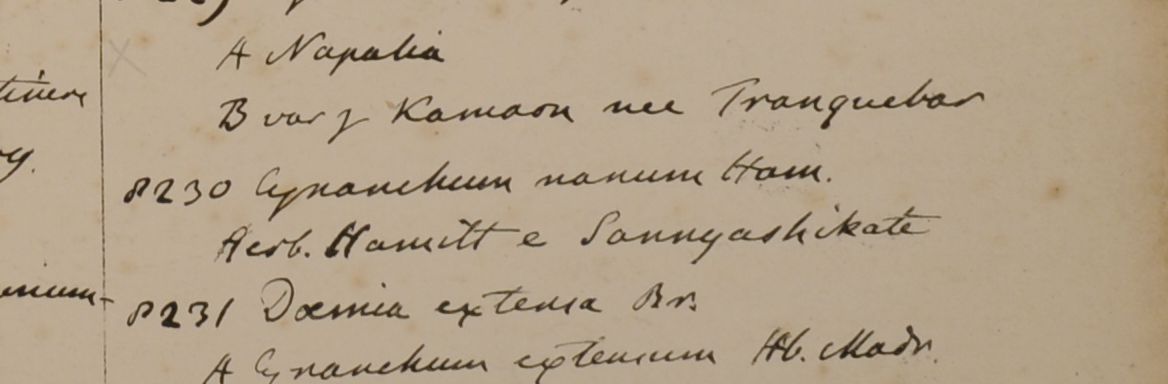 A Napalia
B var γ Kamaon nec Tranquebar
8230 Cynanchum nanum Ham.
Herb. Hamilt e Sannyashikate
8231 Dæmia extensa Br.
A Cynanchum extensum Hb. Madr.